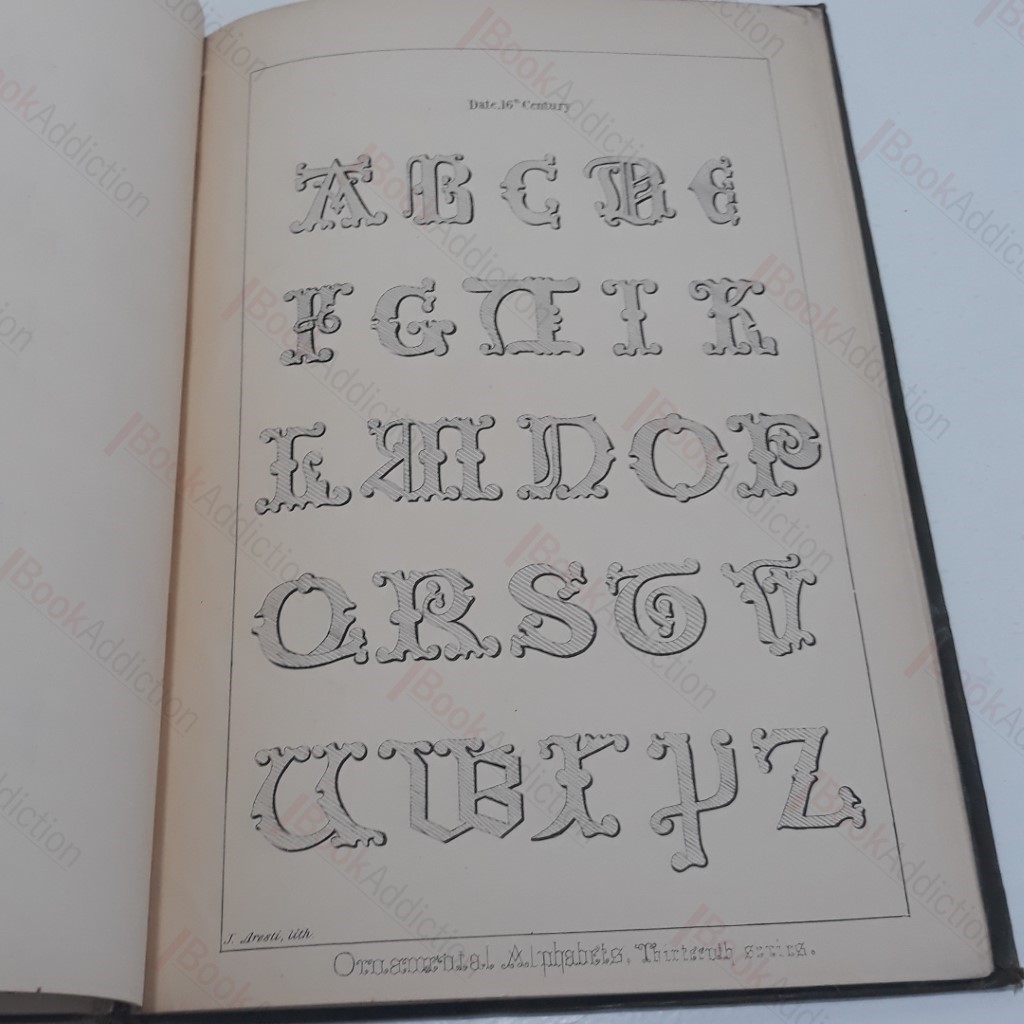 Date, 16th Century
A B C D E
F G H I K
L M N O P
Q R S T V
U W X Y Z
J. Aresti, lith.
Ornamental Alphabets, Thirteenth series.
BookAddiction